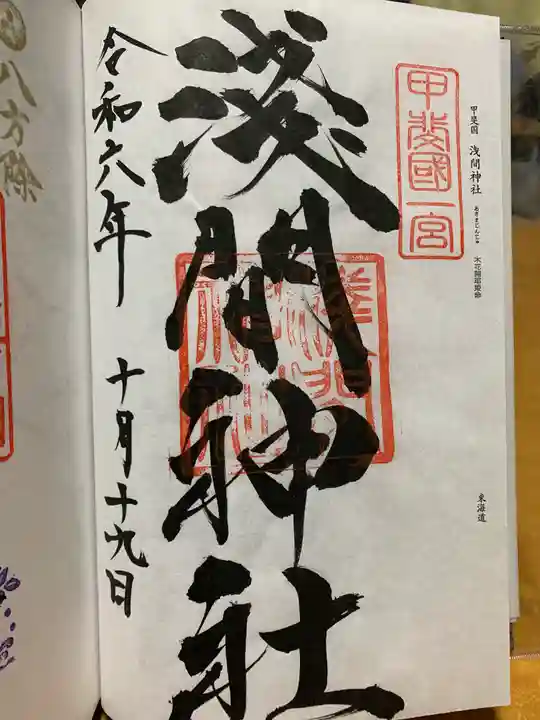 甲斐國一宮
甲斐国 浅間神社
あさまじんじゃ
木花開耶姫命
東海道
淺間神社
令和六年 十月十九日
八方除